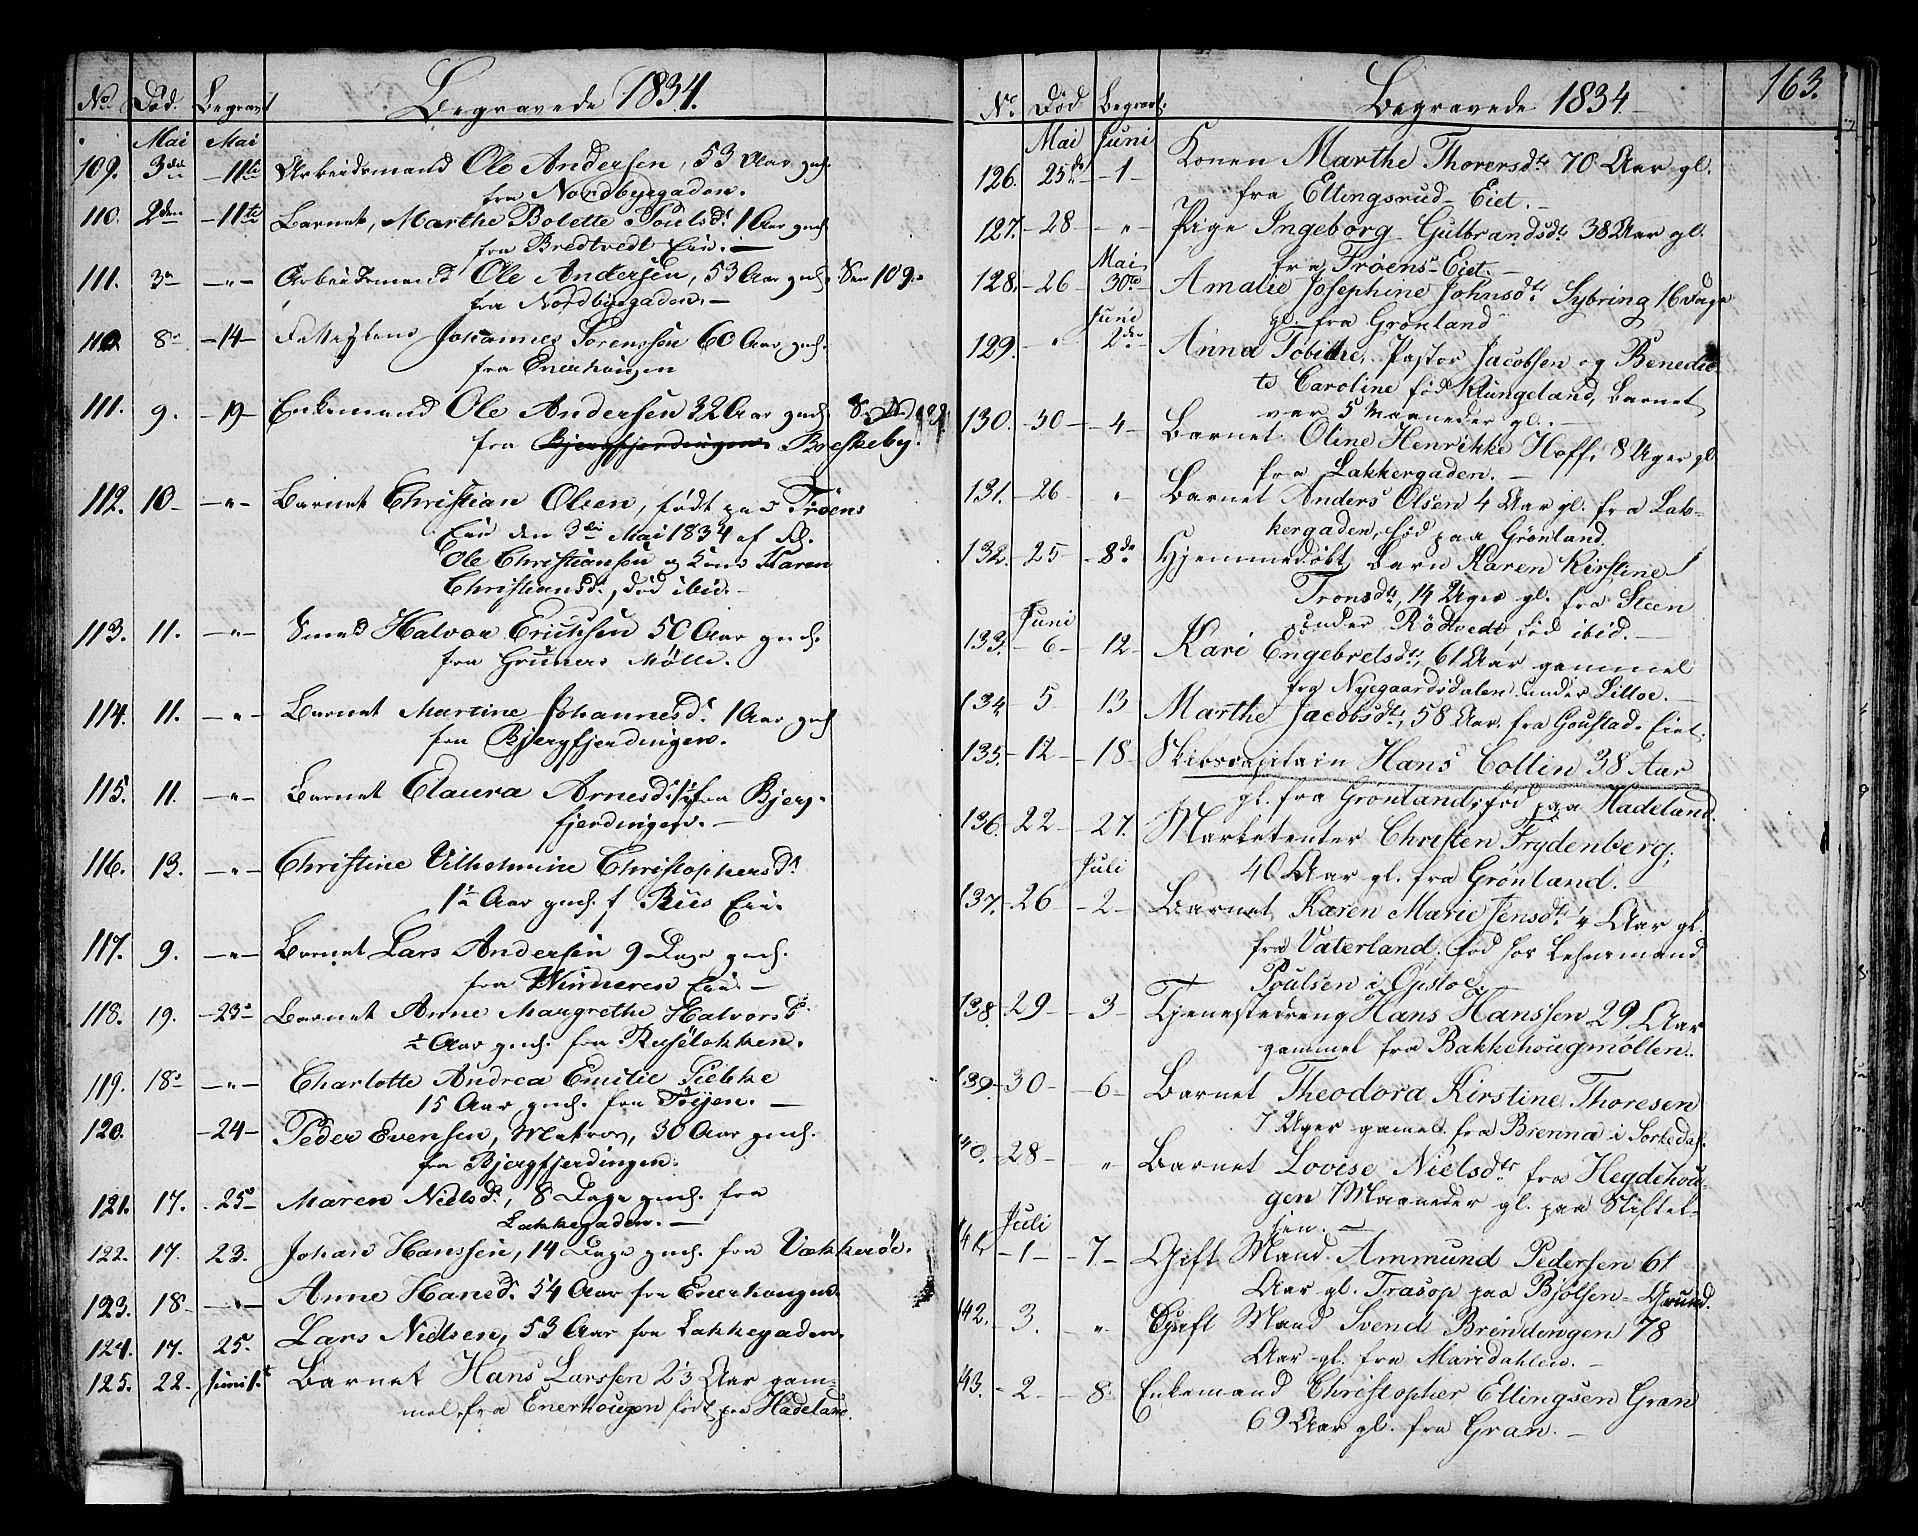 No. Død. Begravt Begravede 1834.
Mai Mai
109. 3die – 11te Arbeidsmand Ole Andersen, 53 Aar gml.
fra Nordbygaden.
110. 2den – 11te Barnet, Marthe Bolette Poulsdr 1 Aar gml.
fra Bredtvedt Eie. –
111. 3die – „ – Arbeidsmand Ole Andersen, 53 Aar gml. See 109.
fra Nordbygaden. –
110. 8de – 14 – Fattiglem Johannes Sørenssen 60 Aar gml.
fra Enerhougen
111. 9. – 19 – Enkemand Ole Andersen 32 Aar gml.
fra Bjergfjerdingen Breskeby.
112. 10 – – „ – Barnet Christian Olsen, født paa Trøens
Eie den 3die Mai 1834 af
Ole Christiansen og Kone Karen
Christiansd., død ibid. –
113. 11. – „ – Smed Halvor Ericksen 50 Aar gml.
fra Gruners Mølle.
114. 11. – „ – Barnet Martine Johannesdr 1 Aar gml
fra Bjergfjerdingen.
115. 11. – „ – Barnet Elaura Arnesd: 1/2 fra Bjerg-
fjerdingen. –
116. 13. – „ – Christine Vilhelmine Christophersdr
1½ Aar gml. f Riis Eie.
117. 9. – „ – Barnet Lars Andersen 9 Dage gml.
fra Eie. –
118. 19. – 23de Barnet Anne Margrethe Halvorsdr
½ Aar gml. fra Ruseløkken.
119. 18de – „ – Charlotte Andrea Emilie Siebke
15 Aar gml. fra Tøijen. –
120. – 24 – Peder Evensen, Matros, 30 Aar gml.
fra Bjergfjerdingen.
121. 17. – 25de Maren Nielsdr, 8 Dage gml. fra
Lakkegaden. –
122. 17. 23. Johan Hanssen, 14 Dage gml. fra Vækkerøe.
123. 18 – „ – Anne Hansdr 54 Aar fra Enerhougen.
124. 17. 25. Lars Nielsen, 53 Aar fra Lakkegaden.
125. 22. Juni 1. Barnet Hans Larssen 23 Aar gam-
mel fra Enerhougen født paa Hadeland.
163.
No. Død Begravt. Begravede 1834
Mai Juni
126. 25de – 1 – Konen Marthe Thorersdtr 70 Aar gl.
fra Ellingsrud-Eiet. –
127. – 28 – „ – Pige Ingeborg Gulbrandsdtr 38 Aar gl.
fra Trøens-Eiet. –
Mai
128. – 26 – 30te Amalie Josephine Johnsdtr Sybring 16 Dage
gl. fra Grønland
Juni
129. „ 2den Anna Tobithe, Pastor Jacobsen og Benedic-
te Caroline fød Klungeland, Barnet
var 5 Maaneder gl. –
130. – 30 – – 4 – Barnet Oline Henrikke Hoff. 8 Uger gl
fra Lakkergaden. –
131. – 26 – „ – Barnet Anders Olsen 4 Aar gl. fra Lak-
kergaden, fød paa Grønland.
132. – 25 – 8de Hjemmedøbt Barn Karen Kirstine
Tronsdtr, 14 Uger gl. fra Steen
under Rødtvedt fød ibid. –
Juni
133. – 6 – 12 – Kari Engebretsdtr, 61 Aar gammel
fra Nyegaardsdalen under Lilloe. –
134. 5 – 13 Marthe Jacobsdtr, 58 Aar. fra Goustad-Eiet.
135. – 12 – – 18 – Skibscapitain Hans Collin 38 Aar
gl. fra Grønland, fød paa Hadeland.
136. – 22 – – 27. Marketenter Christen Frydenberg,
40 Aar gl. fra Grønland.
Juli
137. – 26 – 2 – Barnet Karen Marie Jensdtr 4 Aar gl.
fra Vaterland, fød hos Lehnsmand
Poulsen i Opsloe.
138. – 29 – – 3 – Tjenestedreng Hans Hanssen 29 Aar
gammel fra Bakkehougmøllen.
139. – 30 – – 6 – Barnet Theodora Kirstine Thoresen
7 Uger gamel. fra Brenna i Sørkedal.
40. – 28 – „ Barnet Lovise Nielsdtr fra Hegdehou-
gen 7 Maaneder gl. paa Stiftel-
sen. –
Juli
41. – 1 – – 7. – Gift Mand Ammund Pedersen 61
Aar gl. Trasop paa Bjølsen-Grund.
42. – 3. „ – Gift Mand Svend Brindengen 78
Aar gl. fra Maridahlen. –
43. – 2 – – 8. – Enkemand Christopher Ellingsen Gran
69 Aar gl. fra Gran. –